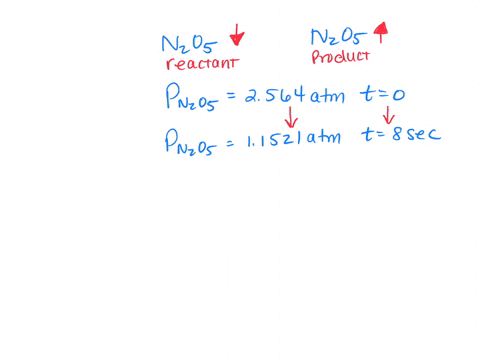 N₂O₅ ↓ N₂O₅ ↑
reactant Product
P_N₂O₅ = 2.564 atm t = 0
↓ ↓
P_N₂O₅ = 1.1521 atm t = 8 sec